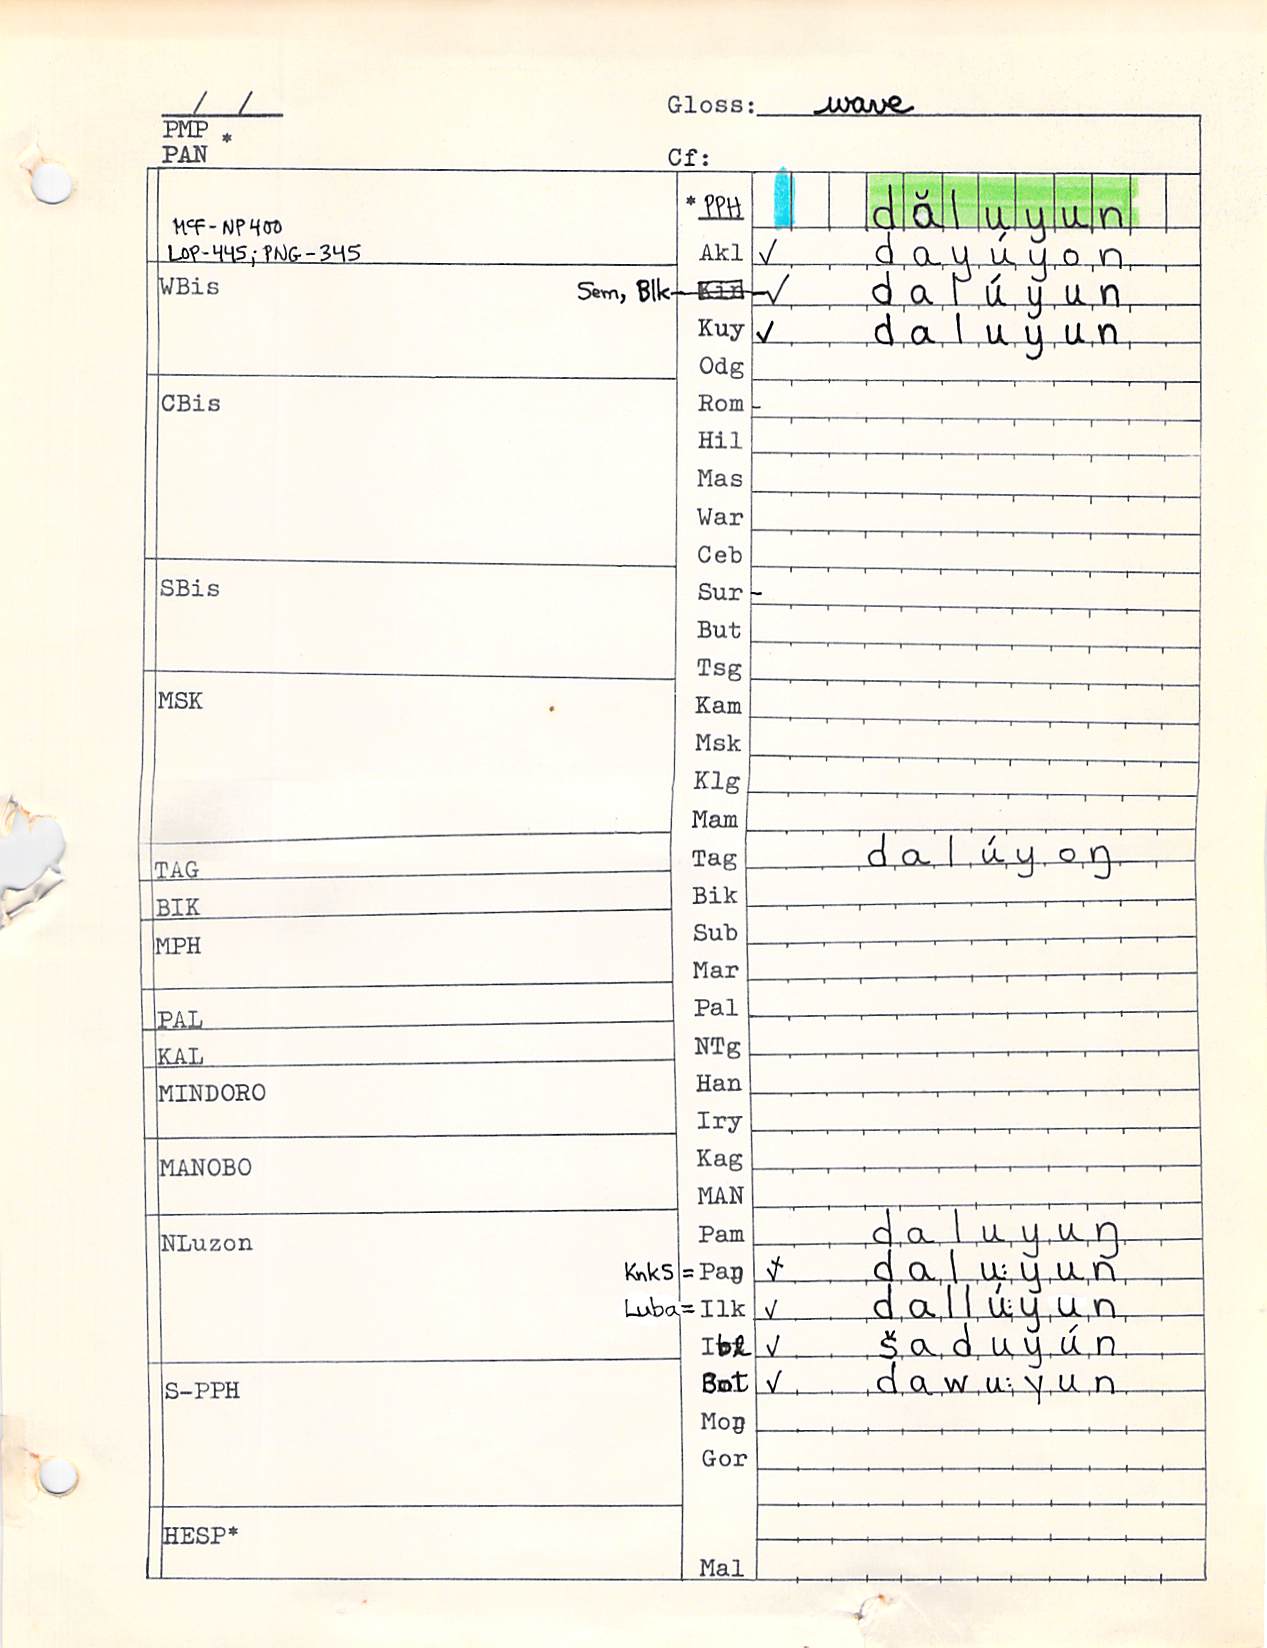 / /
Gloss: wave
PMP *
PAN
Cf:
* PPH dăluyun
McF-NP400
LOP-445; PNG-345
Akl ✓ dayúyon
WBis
Sem, Blk ✓ dalúyun
Kuy ✓ daluyun
Odg
CBis
Rom -
Hil
Mas
War
Ceb
SBis
Sur -
But
Tsg
MSK
Kam
Msk
Klg
Mam
TAG
Tag dalúyoŋ
BIK
Bik
MPH
Sub
Mar
PAL
Pal
KAL
NTg
MINDORO
Han
Iry
MANOBO
Kag
MAN
NLuzon
Pam daluyuŋ
KnkS = Paŋ ✓ dalu:yun
Luba = Ilk ✓ dallú:yun
Ibl ✓ šaduyún
S-PPH
Bot ✓ dawu:yun
Moŋ
Gor
HESP*
Mal